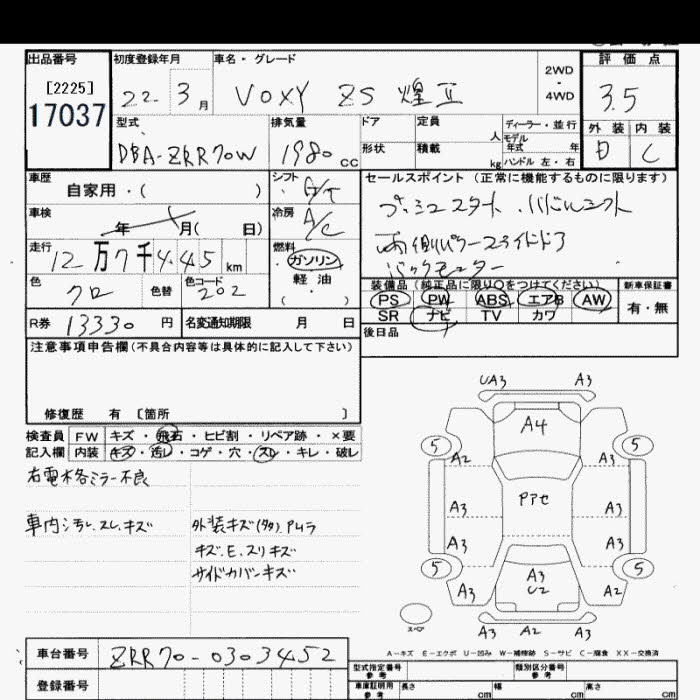 出品番号 初度登録年月 車名・グレード 2WD・4WD 評価点
[2225]
17037 22年 3月 VOXY ZS 煌Ⅱ 3.5
型式 排気量 ドア 定員 人 ディーラー・並行 外装 内装
モデル年式 年
DBA-ZRR70W 1980cc 形状 積載 kg ハンドル 左・右 D C
車歴 自家用・( ) シフト A/T セールスポイント (正常に機能するものに限ります)
プッシュスタート
車検 年 月( 日) 冷房 A/C 両側パワースライドドア
走行 12万7千445km 燃料 ガソリン バックモニター
軽油
( )
色 クロ 色替 色コード 202 装備品 (純正品に限り○をつけてください) 新車保証書
PS PW ABS エアB AW 有・無
R券 13330円 名変通知期限 月 日 SR ナビ TV カワ
後日品
注意事項申告欄(不具合内容等は具体的に記入して下さい)
修復歴 有 〔箇所 〕
検査員 FW キズ・飛石・ヒビ割・リペア跡・×要
記入欄 内装 キズ・汚レ・コゲ・穴・スレ・キレ・破レ
右電格ミラー不良
車内汚レ、スレ、キズ 外装キズ(タタ)、P4ラ
キズ、E、スリキズ
サイドカバーキズ
UA3 A3
A4
5 5
A2 A3
Pite
A3 A3
A3 A3
5 5
A3 A3 A2
U2
スペア
A3 A2 A3
A-キズ E-エクボ U-凹み W-補修跡 S-サビ C-腐食 XX-交換済
車台番号 ZRR70-0303452 型式指定番号 参考 類別区分番号 参考
登録番号 車庫証明用 参考 長さ cm 幅 cm 高さ cm